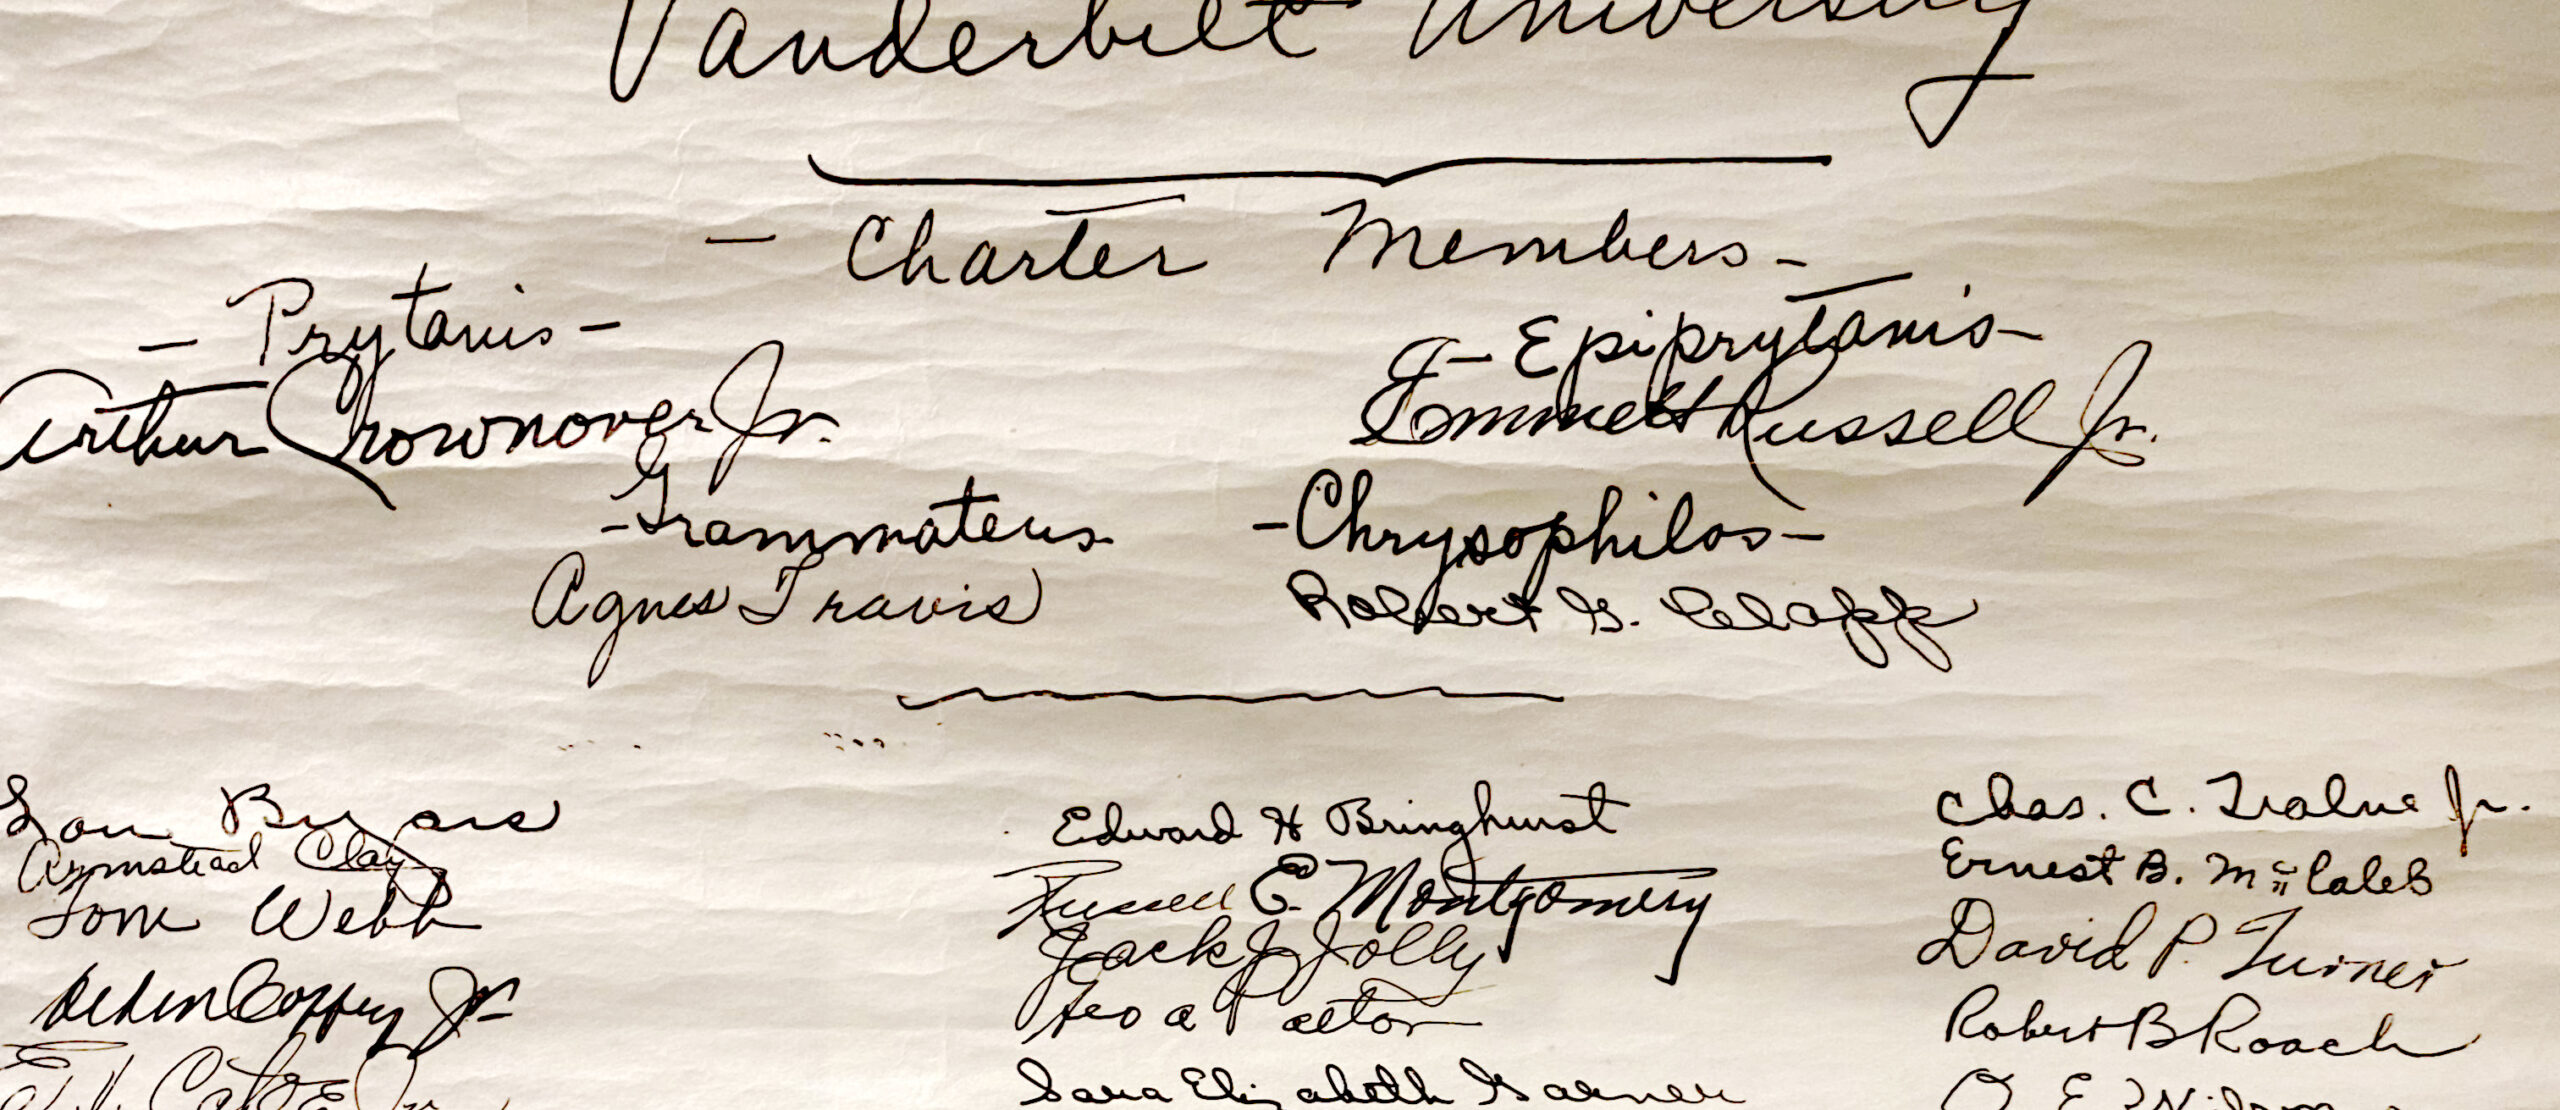 Vanderbilt University
- Charter Members -
- Prytanis -
- Epiprytanis -
Arthur Crownover Jr.
Emmett Russell Jr.
- Grammateus
- Chrysophilos -
Agnes Travis
Robert G. Clapp
Byars
Armstead Clay
Tom Webb
Coffey Jr
Edward H Bringhurst
Russell E. Montgomery
Jack J Jolly
Geo a
Sara Elizabeth Garner
Chas. C. Trabue Jr.
Ernest B. McCaleb
David P. Turner
Robert B Roach
E Wilson